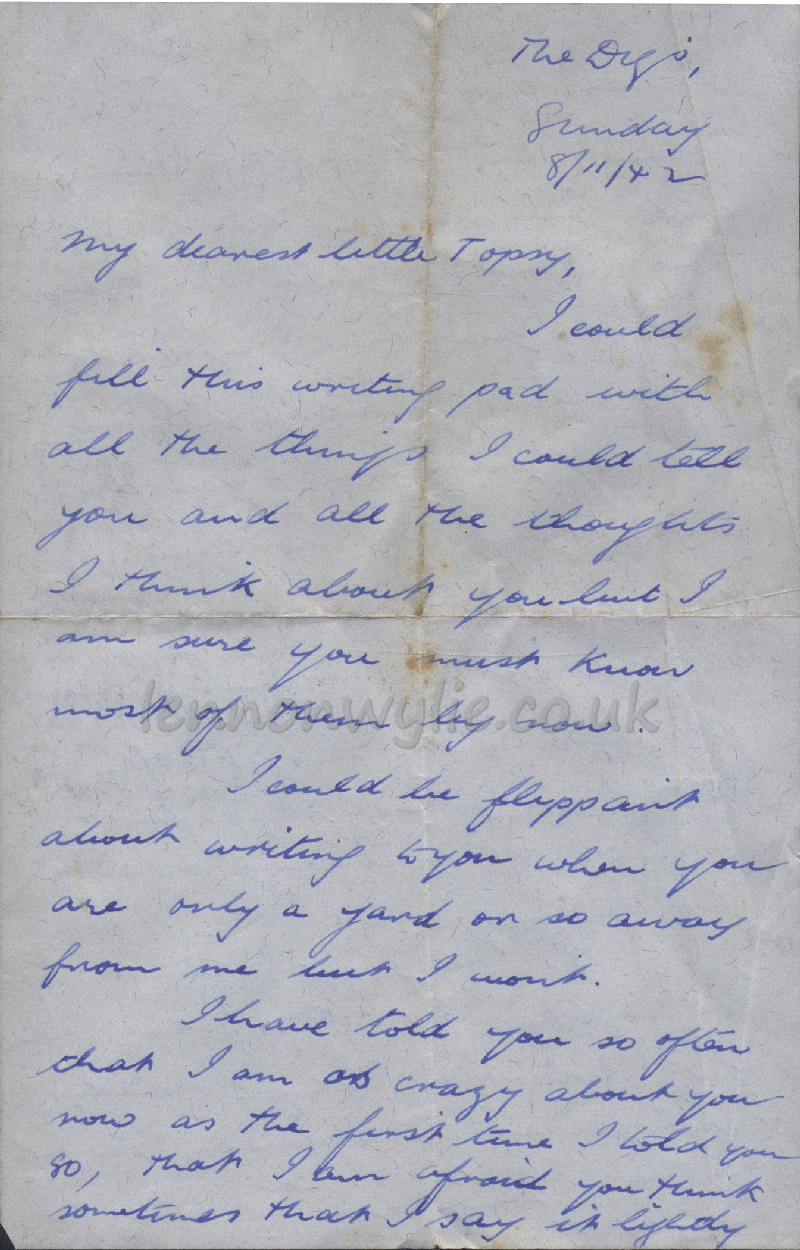 The Digs,
Sunday
8/11/42
My dearest little Topsy,
I could
fill this writing pad with
all the things I could tell
you and all the thoughts
I think about you but I
am sure you must know
most of them by now.
lennonwylie.co.uk
I could be flippant
about writing to you when you
are only a yard or so away
from me but I wont.
I have told you so often
that I am as crazy about you
now as the first time I told you
so, that I am afraid you think
sometimes that I say it lightly